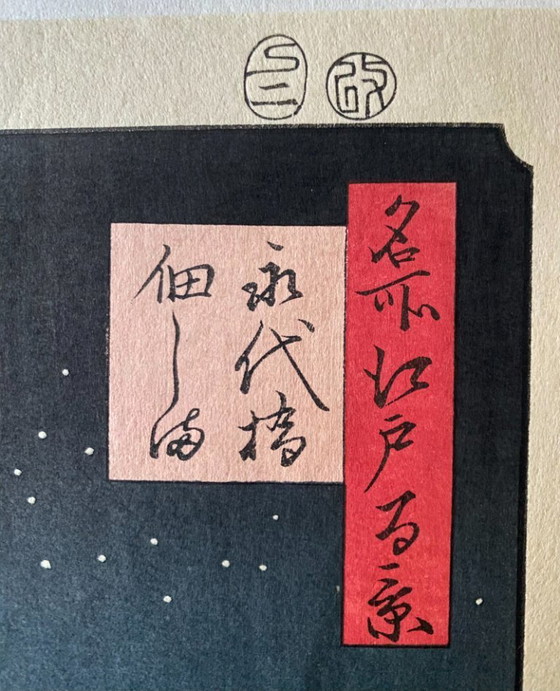 改
巳二
名所江戸百景
永代橋
佃しま